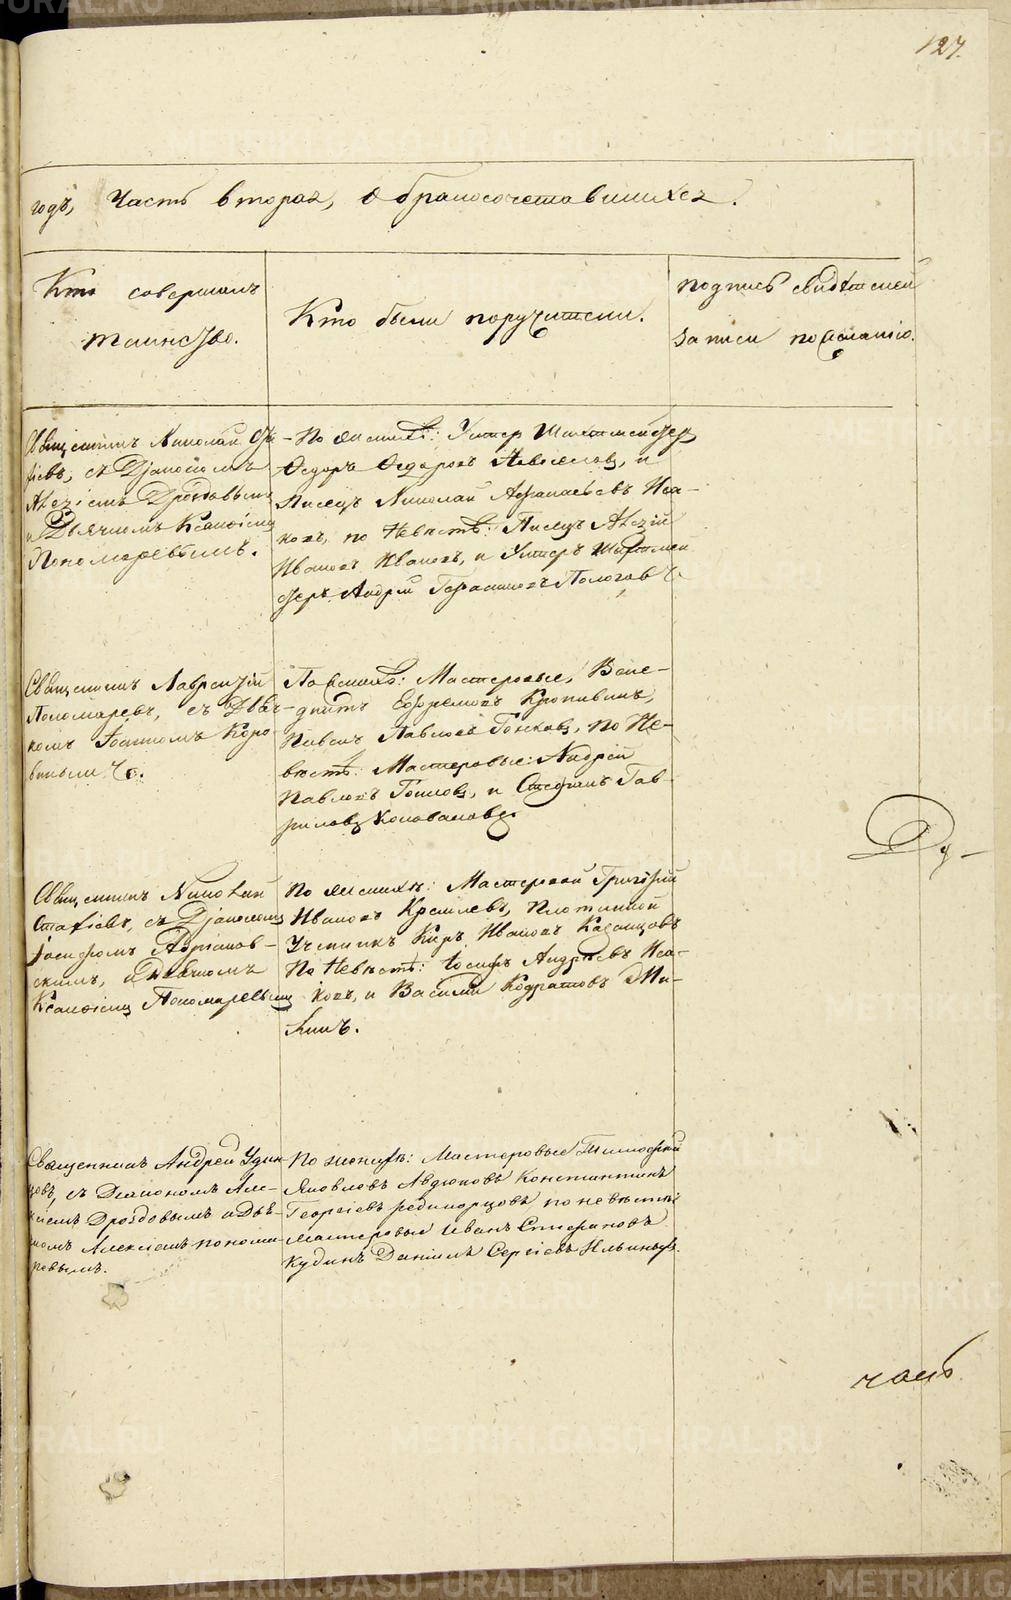 127.
годъ, Часть вторая, о бракосочетавшихся.
Кто совершалъ
таинство.
Кто были поручители.
подпись свидѣтелей
записи по желанію.
Священникъ Николай Ста-
фіевъ, съ Діакономъ
Алексіемъ Дроздовымъ
и Дьячкомъ Ксанфіемъ
Пономаревымъ.
По женихѣ: Унтеръ Шихтмейстер
Ѳедоръ Ѳедоровъ, и
Писецъ Николай Афанасьевъ Иса-
ковъ, по Невѣстѣ: Писецъ Алексій
Ивановъ Ивановъ, и Унтеръ Шихтмей-
стеръ Андрей Пологовъ.
Священникъ Лаврентій
Пономаревъ, съ Дьяч-
комъ Іоанномъ Коро-
виныМЪ.
По женихѣ: Мастеровые, Вене-
диктъ Ефремовъ Кропивинъ,
Павелъ Павловъ, по Не-
вѣстѣ: Мастеровые: Андрей
Павловъ, и Стефанъ Гав-
риловъ Коноваловъ.
Священникъ Николай
Стафіевъ, съ Діакономъ
Іосифомъ Адріанов-
скимъ, и Дьячкомъ
Ксанфіемъ Пономаревымъ
По женихѣ: Мастеровой Григорій
Ивановъ, Плотинной
Ученикъ Киръ Ивановъ Казанцовъ
По Невѣстѣ: Іосифъ Андреевъ Иса-
ковъ, и Василій Кодратовъ Ми-
кинъ.
Священникъ Андрей Удин-
цовъ, съ Діакономъ Але-
ксіемъ Дроздовымъ и Дья-
комъ Алексіемъ Понома-
ревымъ.
По женихѣ: Мастеровые Тимофей
Яковлевъ Авдюковъ Константинъ
Георгіевъ Редикорцовъ по невѣстѣ
мастеровые Иванъ Стефановъ
Кудинъ Даніилъ Сергіевъ Ильиных.
Ду-
часъ
METRIKI.GASO-URAL.RU